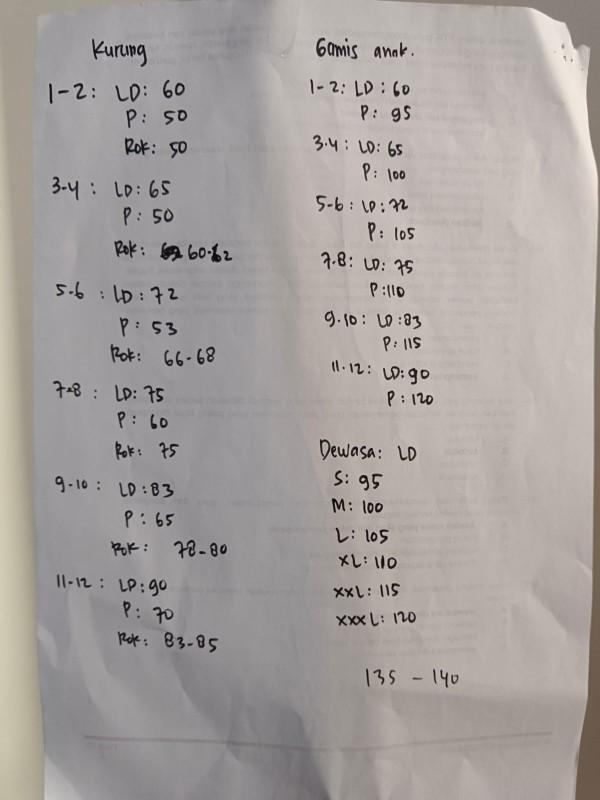 Kurung
1-2: LD: 60
P: 50
Rok: 50
3-4: LD: 65
P: 50
Rok: 60-62
5-6: LD: 72
P: 53
Rok: 66-68
7-8: LD: 75
P: 60
Rok: 75
9-10: LD: 83
P: 65
Rok: 78-80
11-12: LD: 90
P: 70
Rok: 83-85
Gamis anak.
1-2: LD: 60
P: 95
3-4: LD: 65
P: 100
5-6: LD: 72
P: 105
7-8: LD: 75
P: 110
9-10: LD: 83
P: 115
11-12: LD: 90
P: 120
Dewasa: LD
S: 95
M: 100
L: 105
XL: 110
XXL: 115
XXXL: 120
135 - 140